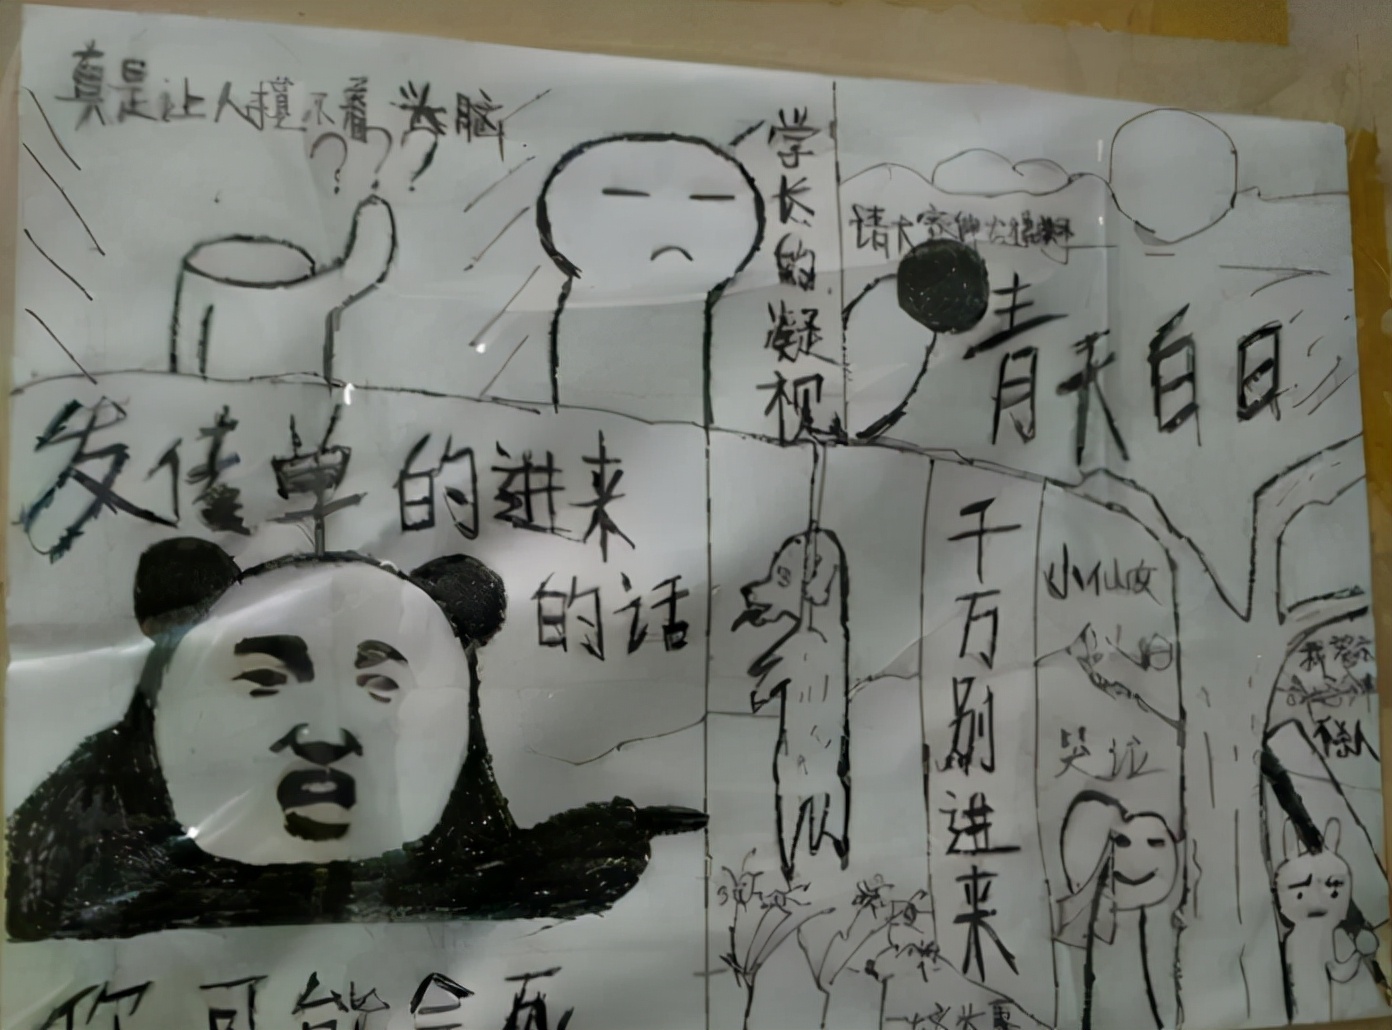 真是让人摸不着头脑
???
学长的凝视
请大家
青天白日
发传单的进来
的话
千万别进来
小仙女
哭泣
你可能会死
我